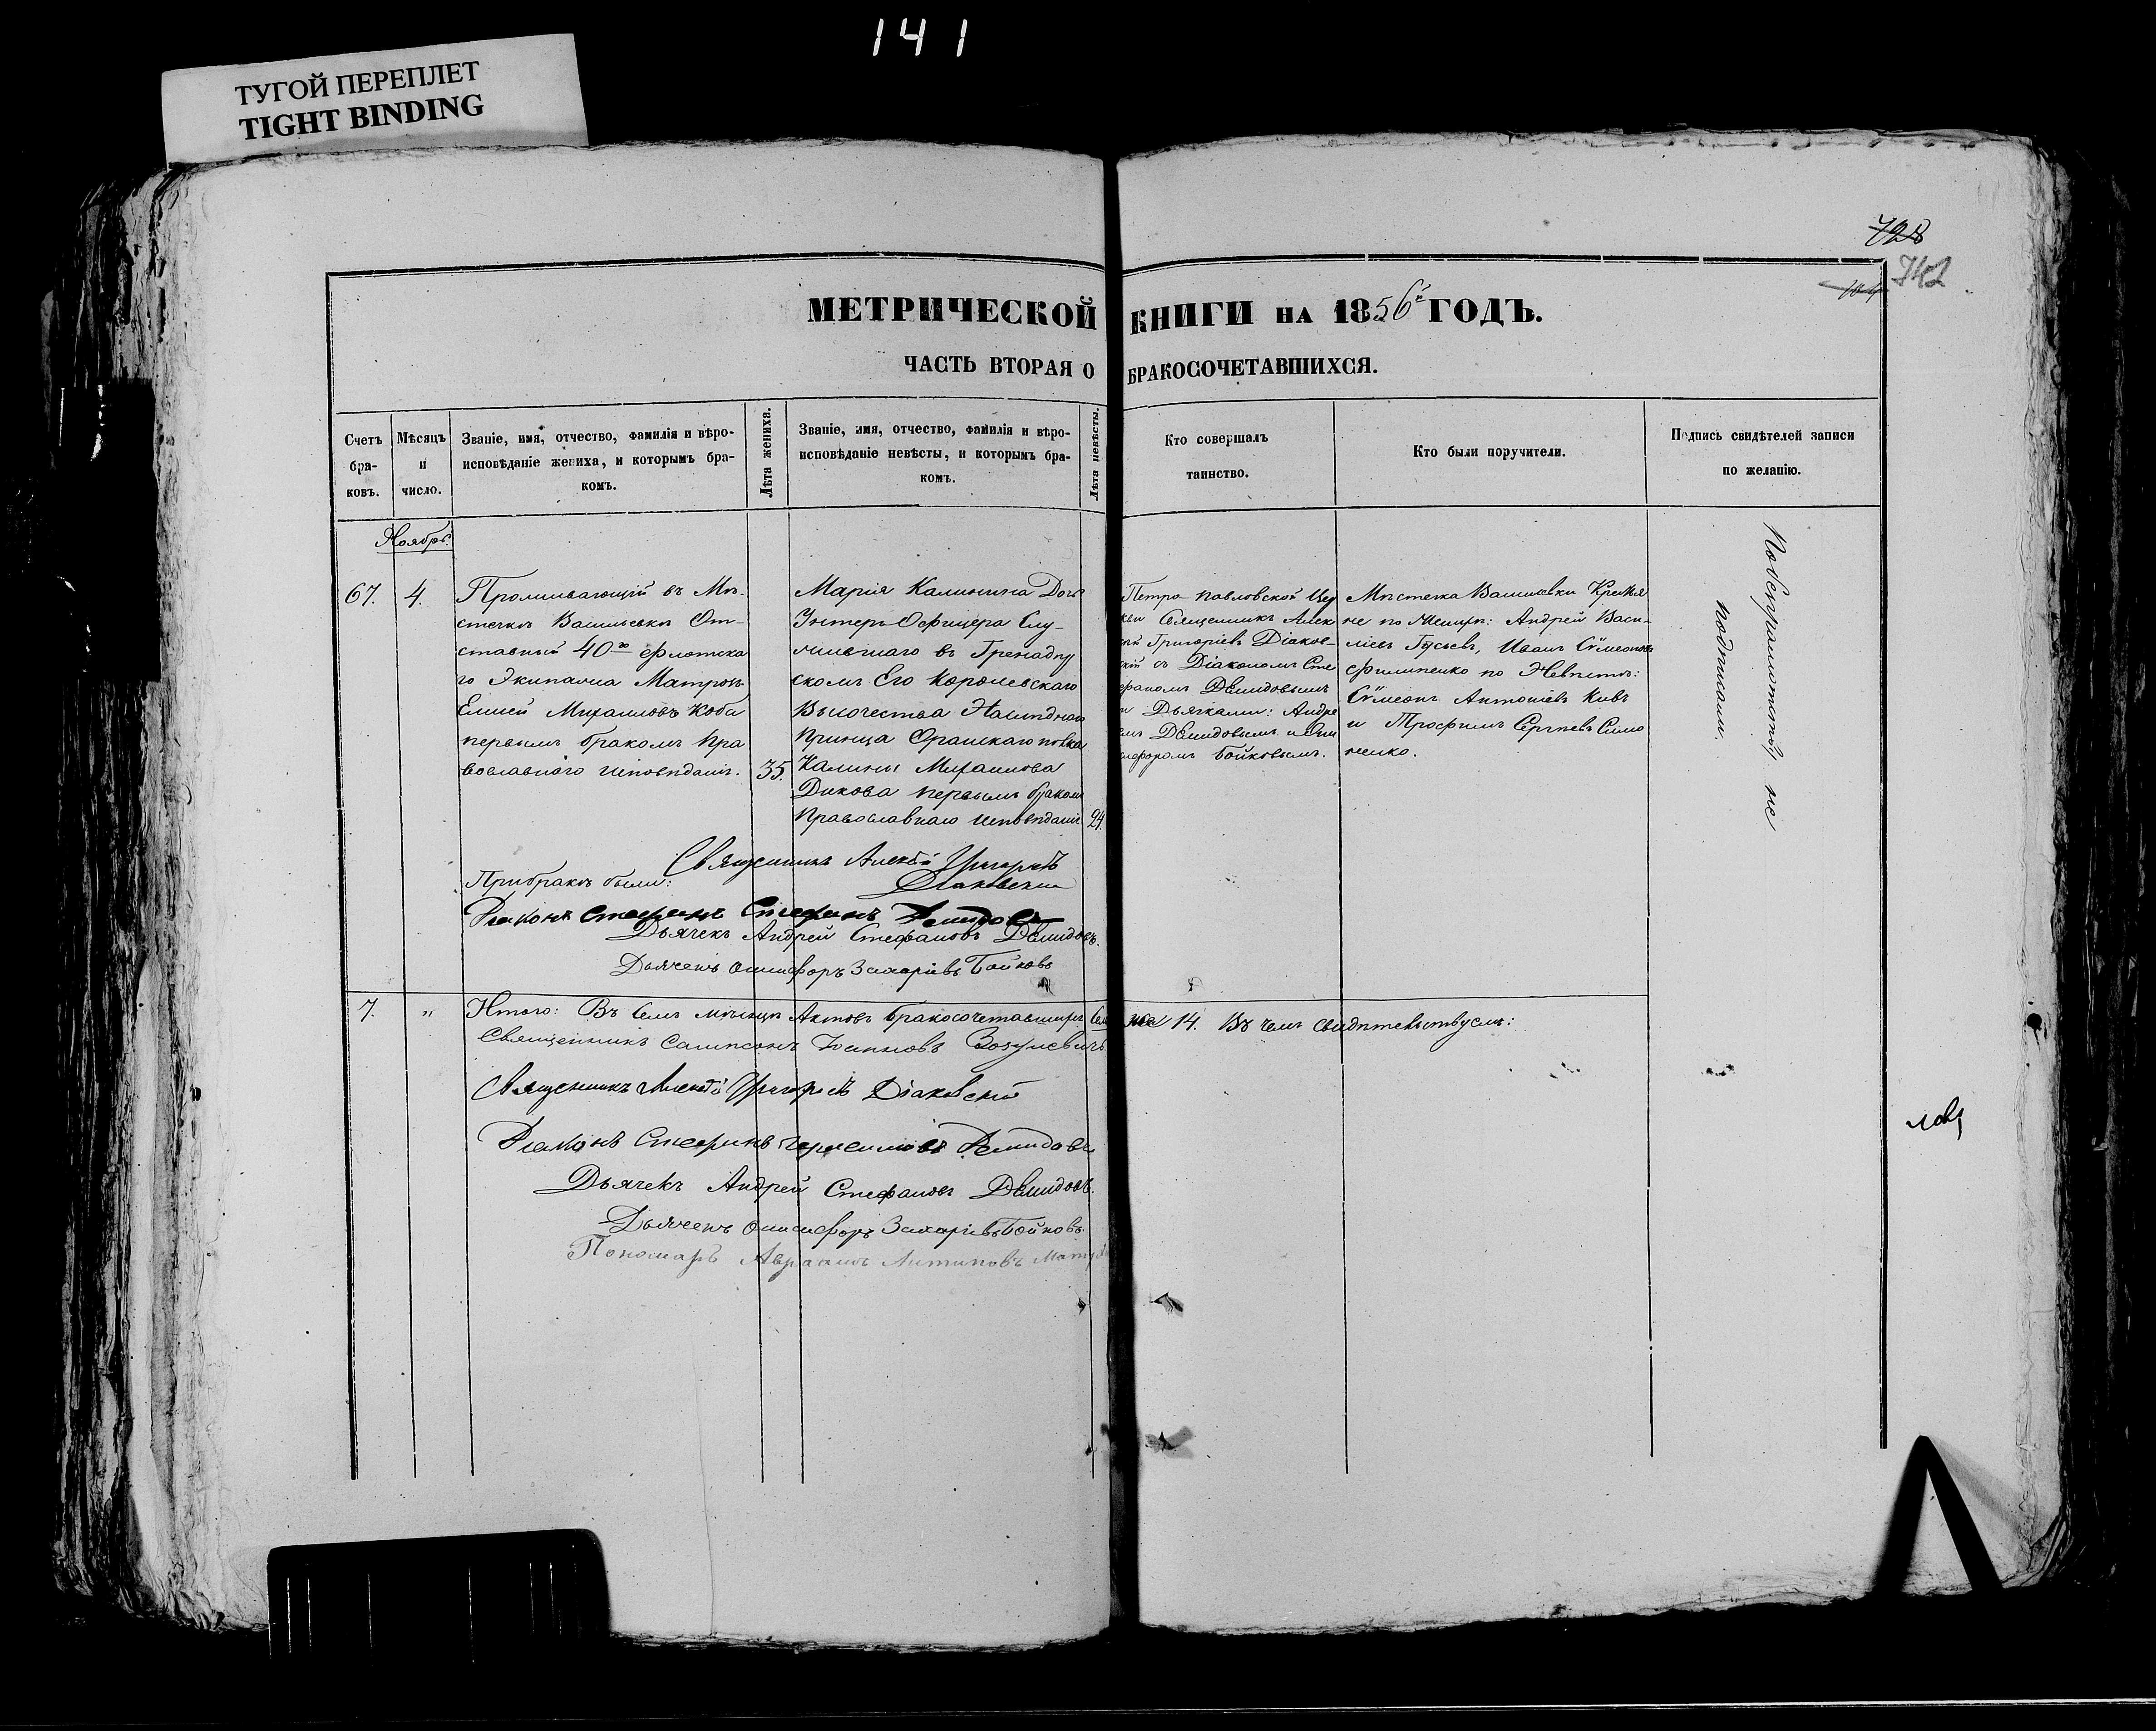 141
ТУГОЙ ПЕРЕПЛЕТ
TIGHT BINDING
728
742
МЕТРИЧЕСКОЙ КНИГИ НА 1856й ГОДЪ.
ЧАСТЬ ВТОРАЯ О БРАКОСОЧЕТАВШИХСЯ.
Счетъ
бра-
ковъ.
Мѣсяцъ
и
число.
Званіе, имя, отчество, фамилія и вѣро-
исповѣданіе жениха, и которымъ бра-
комъ.
Лѣта жениха.
Званіе, имя, отчество, фамилія и вѣро-
исповѣданіе невѣсты, и которымъ бра-
комъ.
Лѣта невѣсты.
Кто совершалъ
таинство.
Кто были поручители.
Подпись свидѣтелей записи
по желанію.
Ноябрь.
67.
4.
Проживающій въ Мѣ-
стечкѣ Васильевкѣ От-
ставный 40го Флотска
го Экипажа Матрозъ
Елисей Михаиловъ Коба
первымъ бракомъ Пра
вославнаго исповѣданія.
35.
Марія Калинина Дочь
Унтеръ-Офицера Слу-
жившаго въ Гренадер
скомъ Его Королевскаго
Высочества Наслѣднаго
Принца Оранскаго полка
Калины Михаилова
Дикова первымъ бракомъ
Православнаго исповѣданія
24.
Петро-Павловской Цер
кви Священникъ Алек
сѣй Григоріевъ Діаков-
скій съ Діакономъ Сте
фаномъ Демидовымъ
и Дьячками: Андре
емъ Демидовымъ и Они
сифоромъ Бойковымъ.
Мѣстечка Васильевки Крестья
не по Жениху: Андрей Васи-
ліевъ Гусьевъ, Иванъ Сѵмеоновъ
Филипенко по Невѣстѣ:
Сѵмеонъ Антоніевъ Кивъ
и Трофимъ Сергѣевъ Симо
ненко.
По безграмотству не
подписали.
Священникъ Алексѣй Григоріевъ
Діаковскій
При бракѣ были:
Діаконъ Стефанъ Демидовъ
Дьячекъ Андрей Стефановъ Демидовъ.
Дьячекъ Онисифоръ Захаріевъ Бойковъ
7.
"
Итого: Въ семъ мѣсяцѣ Актовъ бракосочетавшихся 14. Въ чемъ свидѣтельствуемъ:
Священникъ Сампсонъ Зозулевичъ.
Священникъ Алексѣй Григоріевъ Діаковскій
Діаконъ Стефанъ Герасимовъ Демидовъ
Дьячекъ Андрей Стефановъ Демидовъ.
Дьячекъ Онисифоръ Захаріевъ Бойковъ.
Пономарь Авраамъ Антиповъ